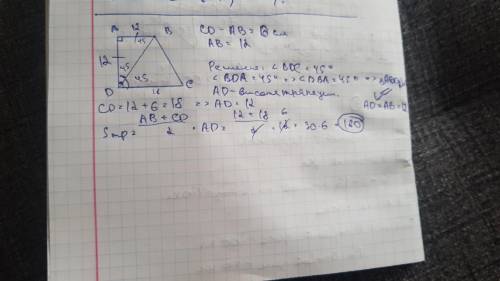 A 12 B
45
CD - AB = 6 см
AB = 12
12
45
45
D C
Решение: ∠BDC = 45°
∠BDA = 45° => ∠DBA = 45° =>
AD - высота трапеции.
AD = AB = 12
CD = 12 + 6 = 18 => AD = 12
Sтр = AB + CD / 2 · AD = 12 + 18 / 2 · 12 6 = 30 · 6 = 180